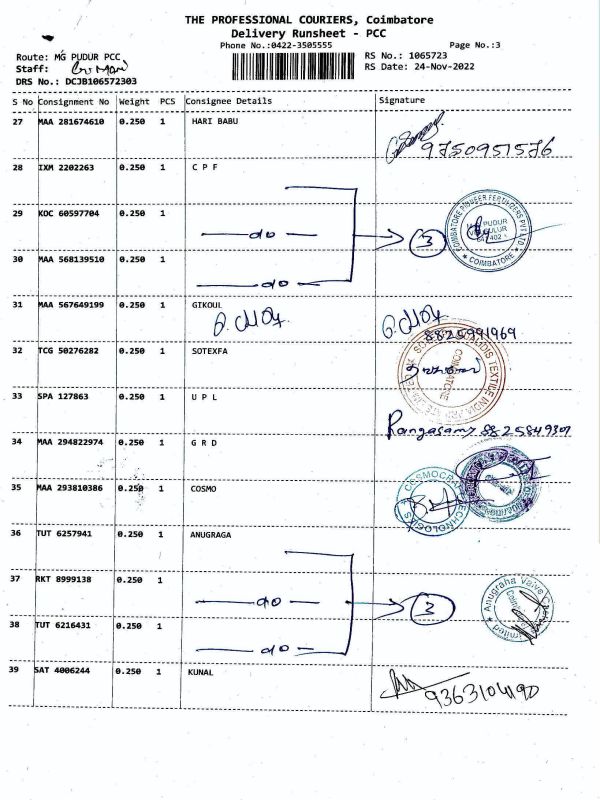 THE PROFESSIONAL COURIERS, Coimbatore
Delivery Runsheet - PCC
Phone No.:0422-3505555 Page No.:3
Route: MG PUDUR PCC RS No.: 1065723
Staff: RS Date: 24-Nov-2022
DRS No.: DCJB106572303
S No Consignment No Weight PCS Consignee Details Signature
27 MAA 281674610 0.250 1 HARI BABU
9750951576
28 IXM 2202263 0.250 1 C P F
29 KOC 60597704 0.250 1
do 3
30 MAA 568139510 0.250 1
do
COIMBATORE PIONEER FERTILIZERS PVT LTD
COIMBATORE
31 MAA 567649199 0.250 1 GIKOUL
8825991969
32 TCG 50276282 0.250 1 SOTEXFA
TEXTILE INDIA
COIMBATORE
33 SPA 127863 0.250 1 U P L
Rangasamy 8825849307
34 MAA 294822974 0.250 1 G R D
35 MAA 293810386 0.250 1 COSMO
COSMOCRAFT TECHNOLOGIES
36 TUT 6257941 0.250 1 ANUGRAGA
37 RKT 8999138 0.250 1
do 3
38 TUT 6216431 0.250 1
do
Anugraha Valve Limited
39 SAT 4006244 0.250 1 KUNAL